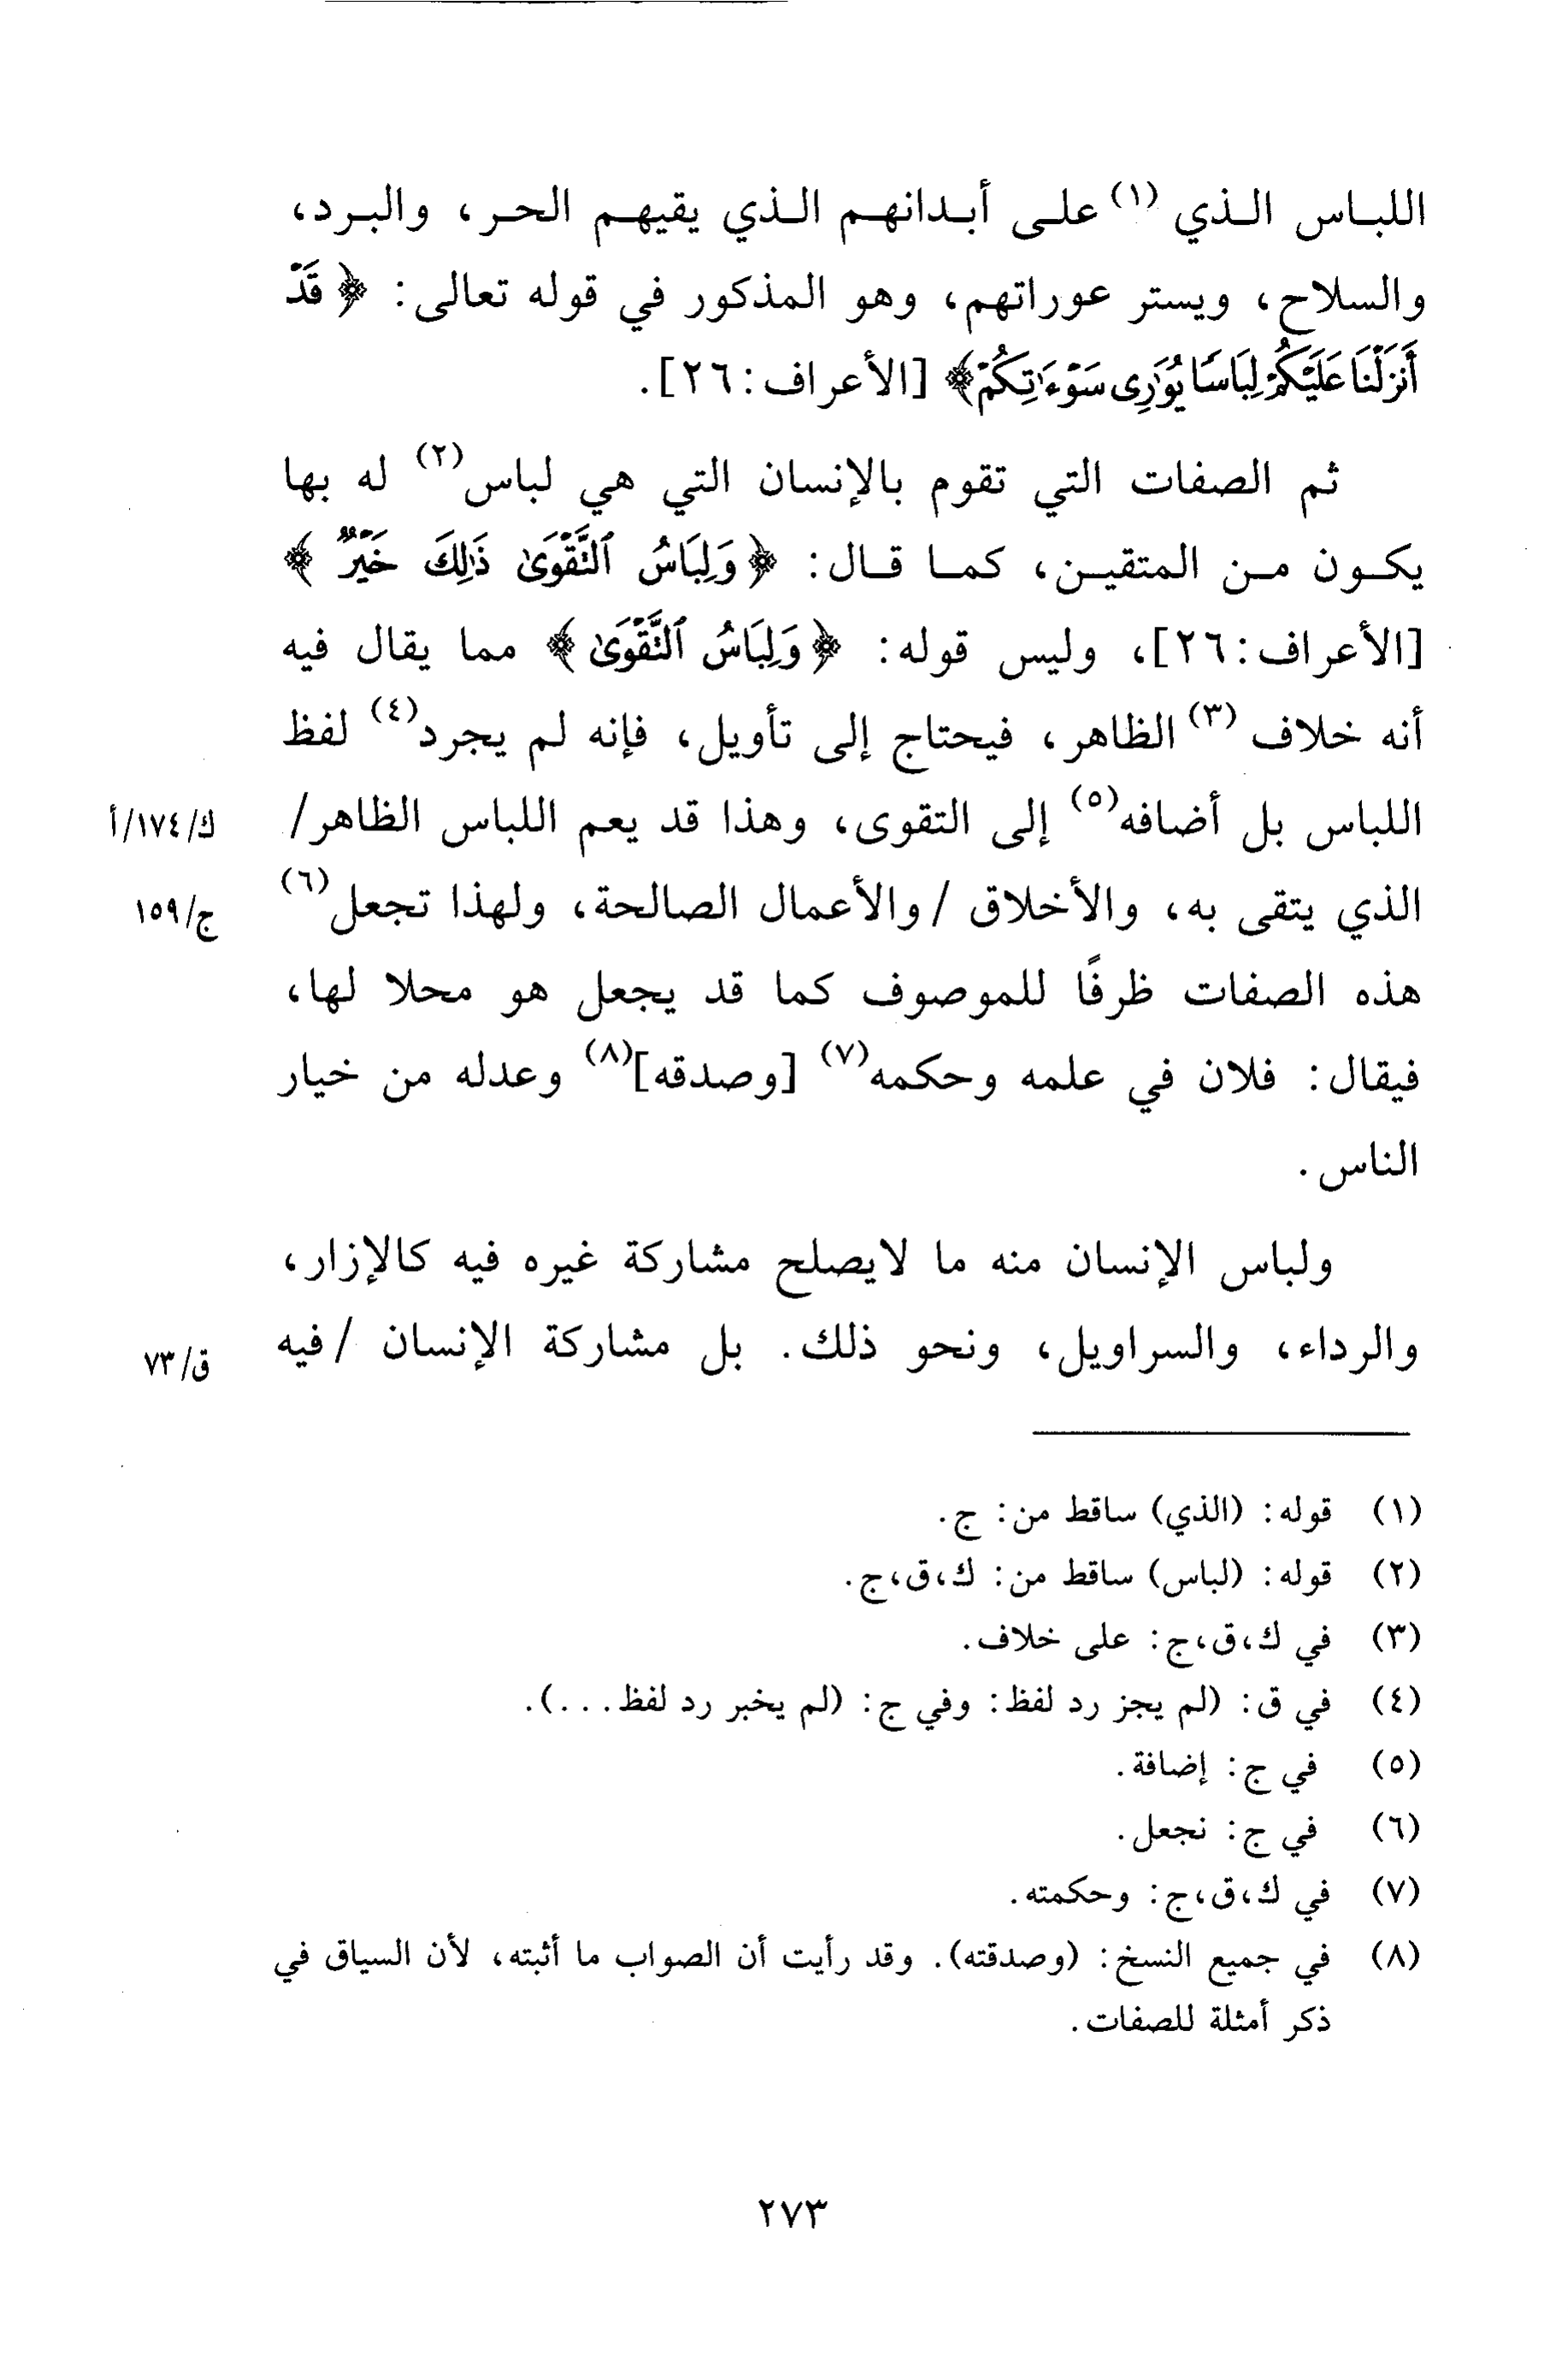 اللبـاس الـذي (١) علـى أبـدانهـم الـذي يقيهـم الحـر، والبـرد،
والسلاح، ويستر عوراتهم، وهو المذكور في قوله تعالى: ﴿قَدْ
أَنزَلْنَا عَلَيْكُمْ لِبَاسًا يُوَٰرِى سَوْءَٰتِكُمْ﴾ [الأعراف: ٢٦].
ثم الصفات التي تقوم بالإنسان التي هي لباس(٢) له بها
يكـون مـن المتقيـن، كمـا قـال: ﴿وَلِبَاسُ ٱلتَّقْوَىٰ ذَٰلِكَ خَيْرٌ﴾
[الأعراف: ٢٦]، وليس قوله: ﴿وَلِبَاسُ ٱلتَّقْوَىٰ﴾ مما يقال فيه
أنه خلاف (٣) الظاهر، فيحتاج إلى تأويل، فإنه لم يجرد(٤) لفظ
اللباس بل أضافه(٥) إلى التقوى، وهذا قد يعم اللباس الظاهر/ ك/١٧٤/أ
الذي يتقى به، والأخلاق /والأعمال الصالحة، ولهذا تجعل(٦) ج/١٥٩
هذه الصفات ظرفًا للموصوف كما قد يجعل هو محلا لها،
فيقال: فلان في علمه وحكمه(٧) [وصدقه](٨) وعدله من خيار
الناس.
ولباس الإنسان منه ما لايصلح مشاركة غيره فيه كالإزار،
والرداء، والسراويل، ونحو ذلك. بل مشاركة الإنسان /فيه ق/٧٣
(١) قوله: (الذي) ساقط من: ج.
(٢) قوله: (لباس) ساقط من: ك،ق،ج.
(٣) في ك،ق،ج: على خلاف.
(٤) في ق: (لم يجز رد لفظ: وفي ج: (لم يخبر رد لفظ...).
(٥) في ج: إضافة.
(٦) في ج: نجعل.
(٧) في ك،ق،ج: وحكمته.
(٨) في جميع النسخ: (وصدقته). وقد رأيت أن الصواب ما أثبته، لأن السياق في
ذكر أمثلة للصفات.
٢٧٣